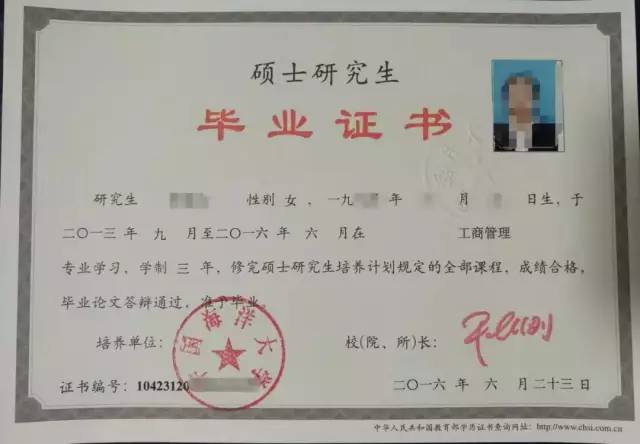 硕士研究生
毕业证书
研究生 性别 女 ，一九 年 月 日生，于
二〇一三 年 九 月至二〇一六 年 六 月在 工商管理
专业学习，学制 三 年，修完硕士研究生培养计划规定的全部课程，成绩合格，
毕业论文答辩通过，准予毕业。
培养单位： 国海洋大学 校(院、所)长：
证书编号：10423120 二〇一六 年 六 月二十三日
中华人民共和国教育部学历证书查询网址：http://www.chsi.com.cn